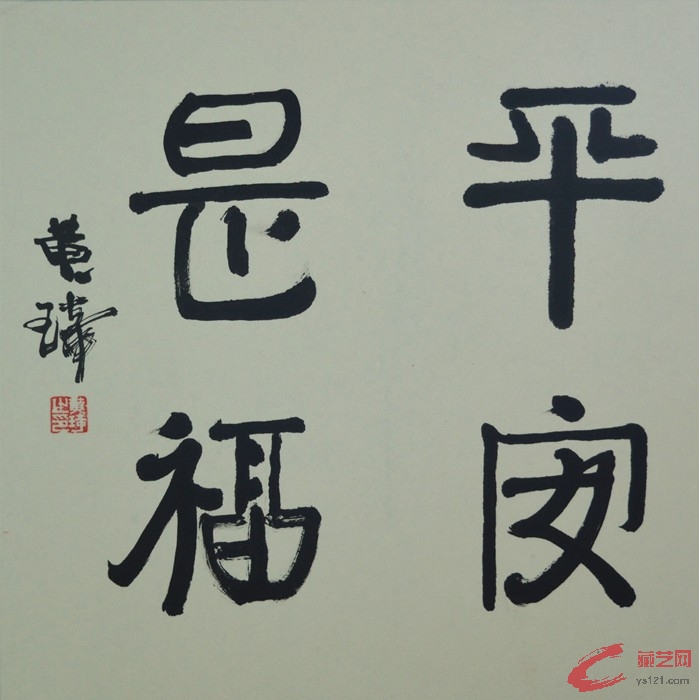 平安
是福
黄
藏艺网
ys121.com